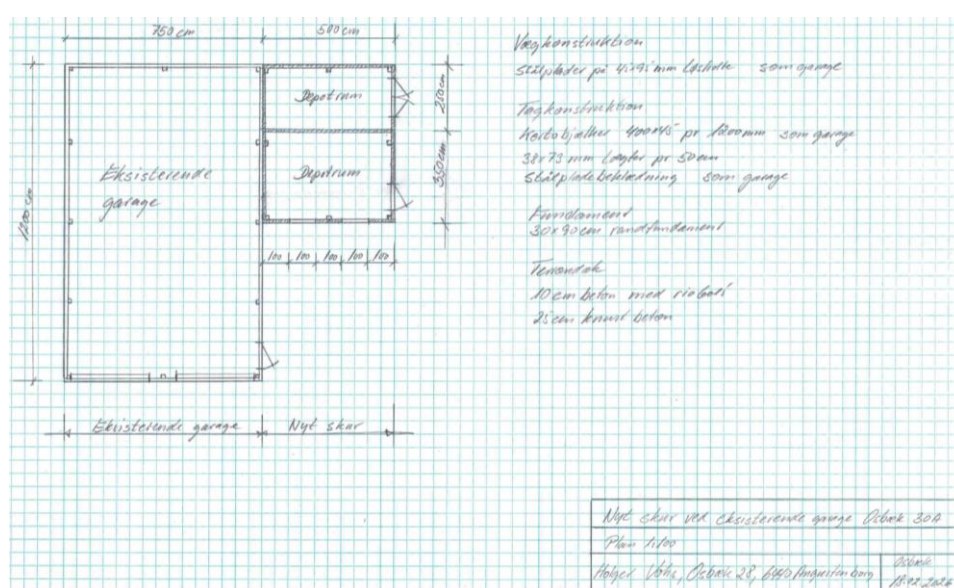 750 cm
500 cm
Depotrum
250 cm
Depotrum
350 cm
Eksisterende
garage
1200 cm
100 100 100 100 100
Eksisterende garage
Nyt skur
Vægkonstruktion
Stålplader på som garage
Tagkonstruktion
pr 1200mm som garage
38x73 mm lægter pr 50cm
Stålpladebeklædning som garage
Fundament
30x90cm randfundament
Terrændæk
10 cm beton med
25cm knust beton
Nyt skur ved eksisterende garage Osbæk 30A
Plan 1:100
Holger Osbæk 28, 6440 Augustenborg
Osbæk